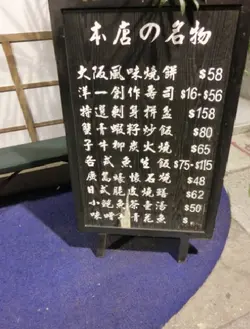 本店の名物
大阪風味燒餅 $58
洋一創作壽司 $16-$56
特選刺身拼盆 $158
蟹青蝦籽炒飯 $80
子牛柳炭火燒 $65
各式魚生飯 $75-$115
廣島蠔懷石燒 $48
日式脆皮燒鱔 $62
小鯢魚茶壺湯 $50
味噌 青花魚 $